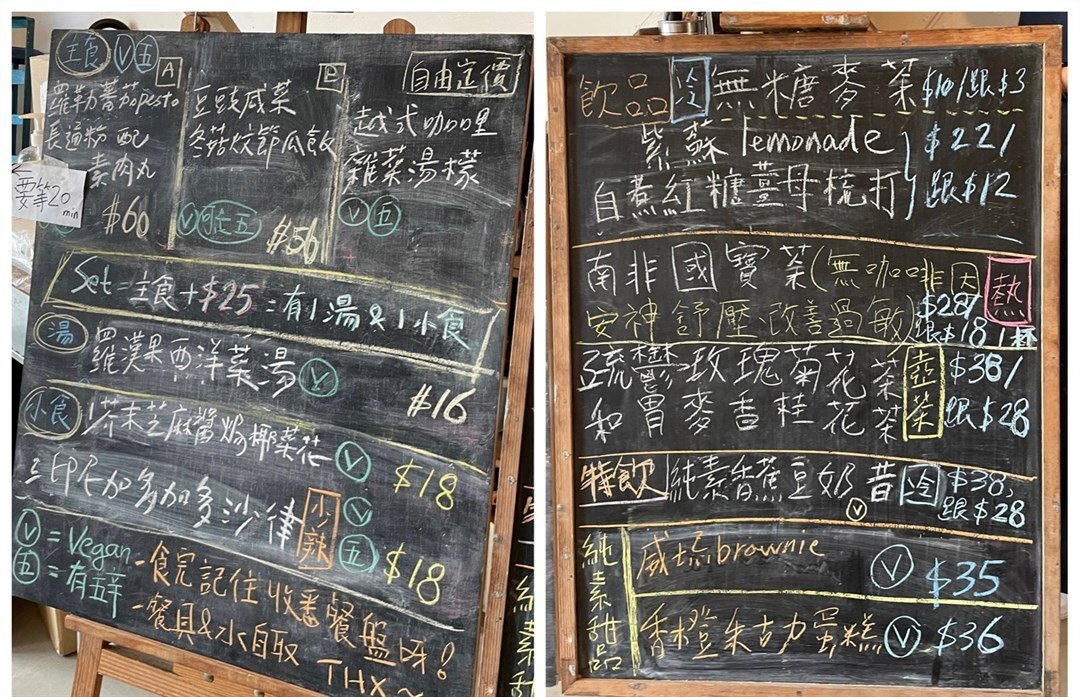 主食 V 五
A
羅勒蕃茄pesto
長通粉 配
素肉丸
要等20
min
$60
B
豆豉咸菜
冬菇炆節瓜飯
V 走五
$56
自由定價
越式咖喱
雜菜湯檬
V 五
Set = 主食 + $25 = 有1湯 & 1小食
湯 羅漢果西洋菜湯 V
$16
小食 1. 芥末芝麻醬焗椰菜花 V
$18
2. 印尼加多加多沙律 小辣 V 五
$18
V = Vegan
五 = 有五辛
- 食完記住收番餐盤呀!
- 餐具&水自取
THX ~
飲品 冷 無糖麥茶 $10/跟$3
紫蘇 lemonade
自煮紅糖薑母梳打
$22/
跟$12
南非國寶茶(無咖啡因
安神舒壓、改善過敏)
熱
$28/
跟$18 1杯
疏鬱玫瑰菊花茶
和胃麥杏桂花茶
壺茶
$38/
跟$28
特飲 純素香蕉豆奶昔 冷 $38,
V 跟$28
純素甜品
威士忌brownie V $35
香橙朱古力蛋糕 V $36